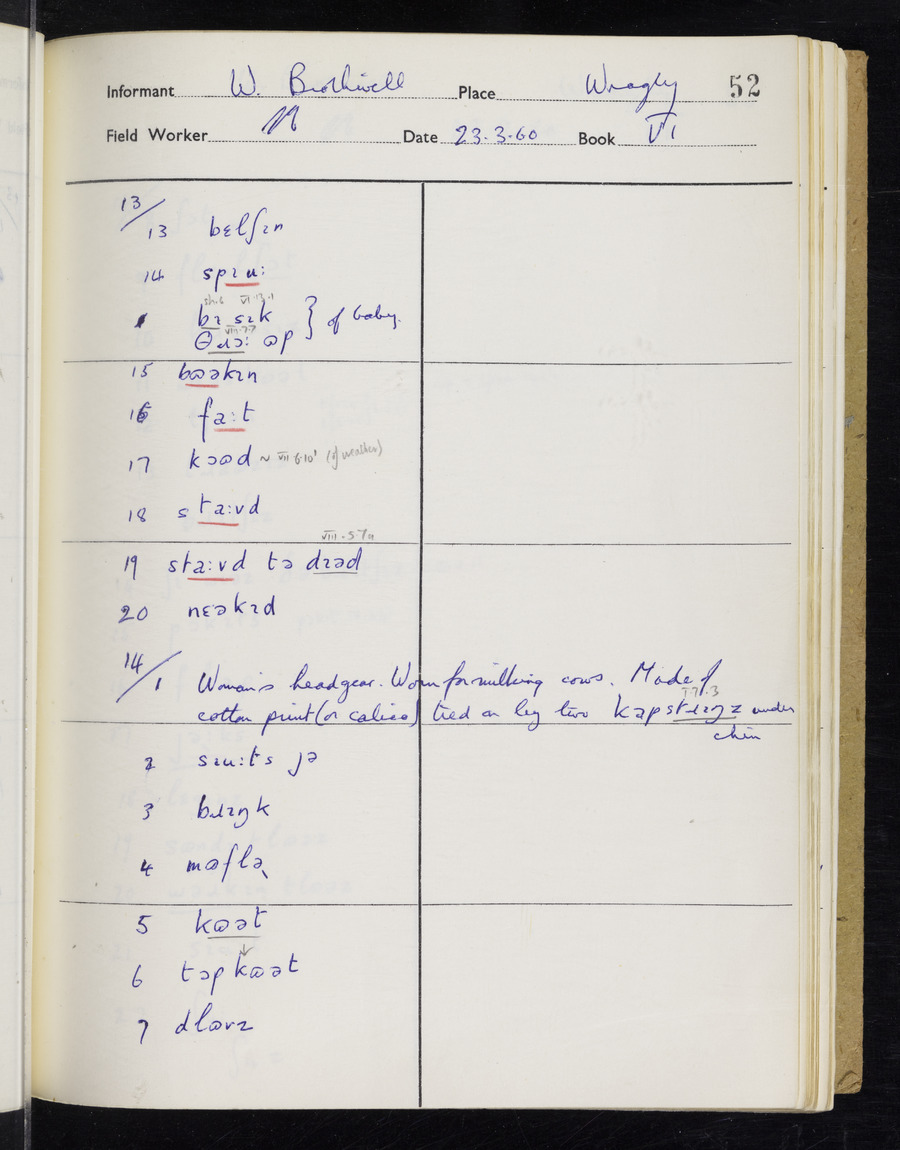 Informant W. Brothwell Place Wragby 52
Field Worker Date 23.3.60 Book VI
13/
13 bɛlʃɪn
14 spɪu:
sh.6 VI.13.1
bɪ sɪk } of baby.
VIII.7.7
θɹɔ: ɷp
15 bɷəkɪn
16 fa:t
17 kɔɷd ~ VII 6.10' (of weather)
18 sta:vd
VIII.5.7a
19 sta:vd tə dɪəd
20 nɛəkɪd
14/
1 Woman's headgear. Worn for milking cows. Made of
I.7.3
cotton print (or calico) tied on by two kapstɹɪŋz under
chin
2 sɪu:ts jə
3 bɹɪŋk
4 mɷflə
5 kɷət
6 tɔp kɷət
7 dlɷvz